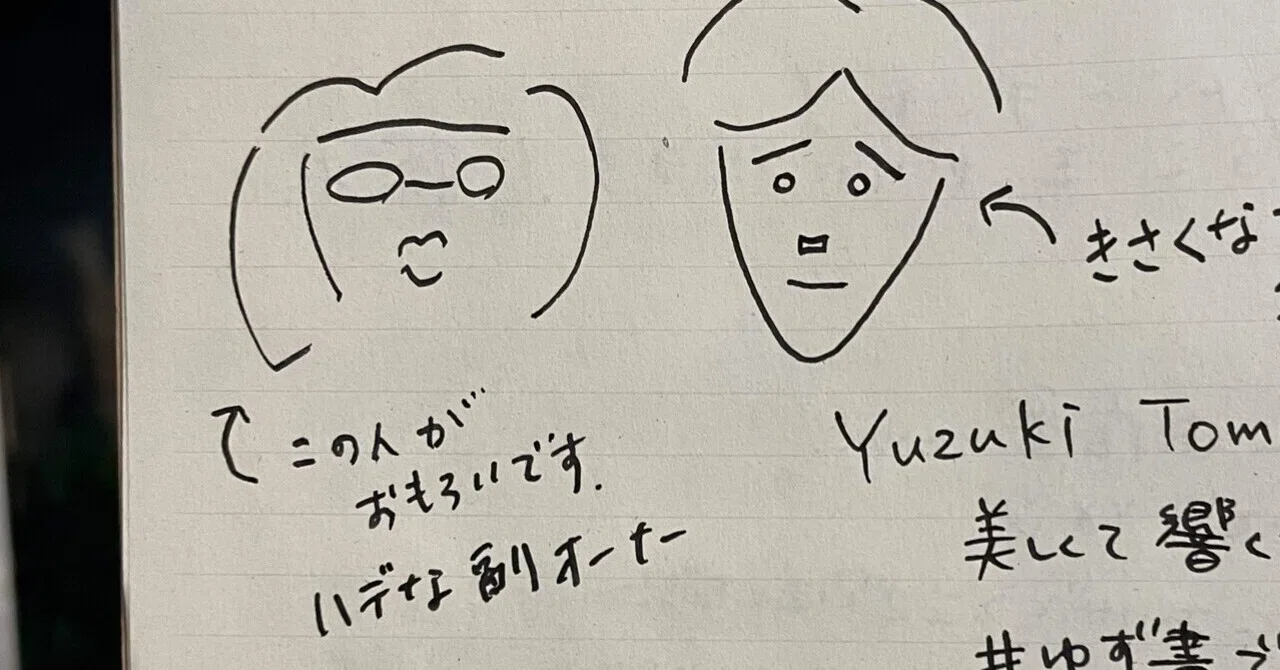 きさくな
この人が
おもろいです.
ハデな副オーナー
Yuzuki Tom
美しくて響く
#ゆず書